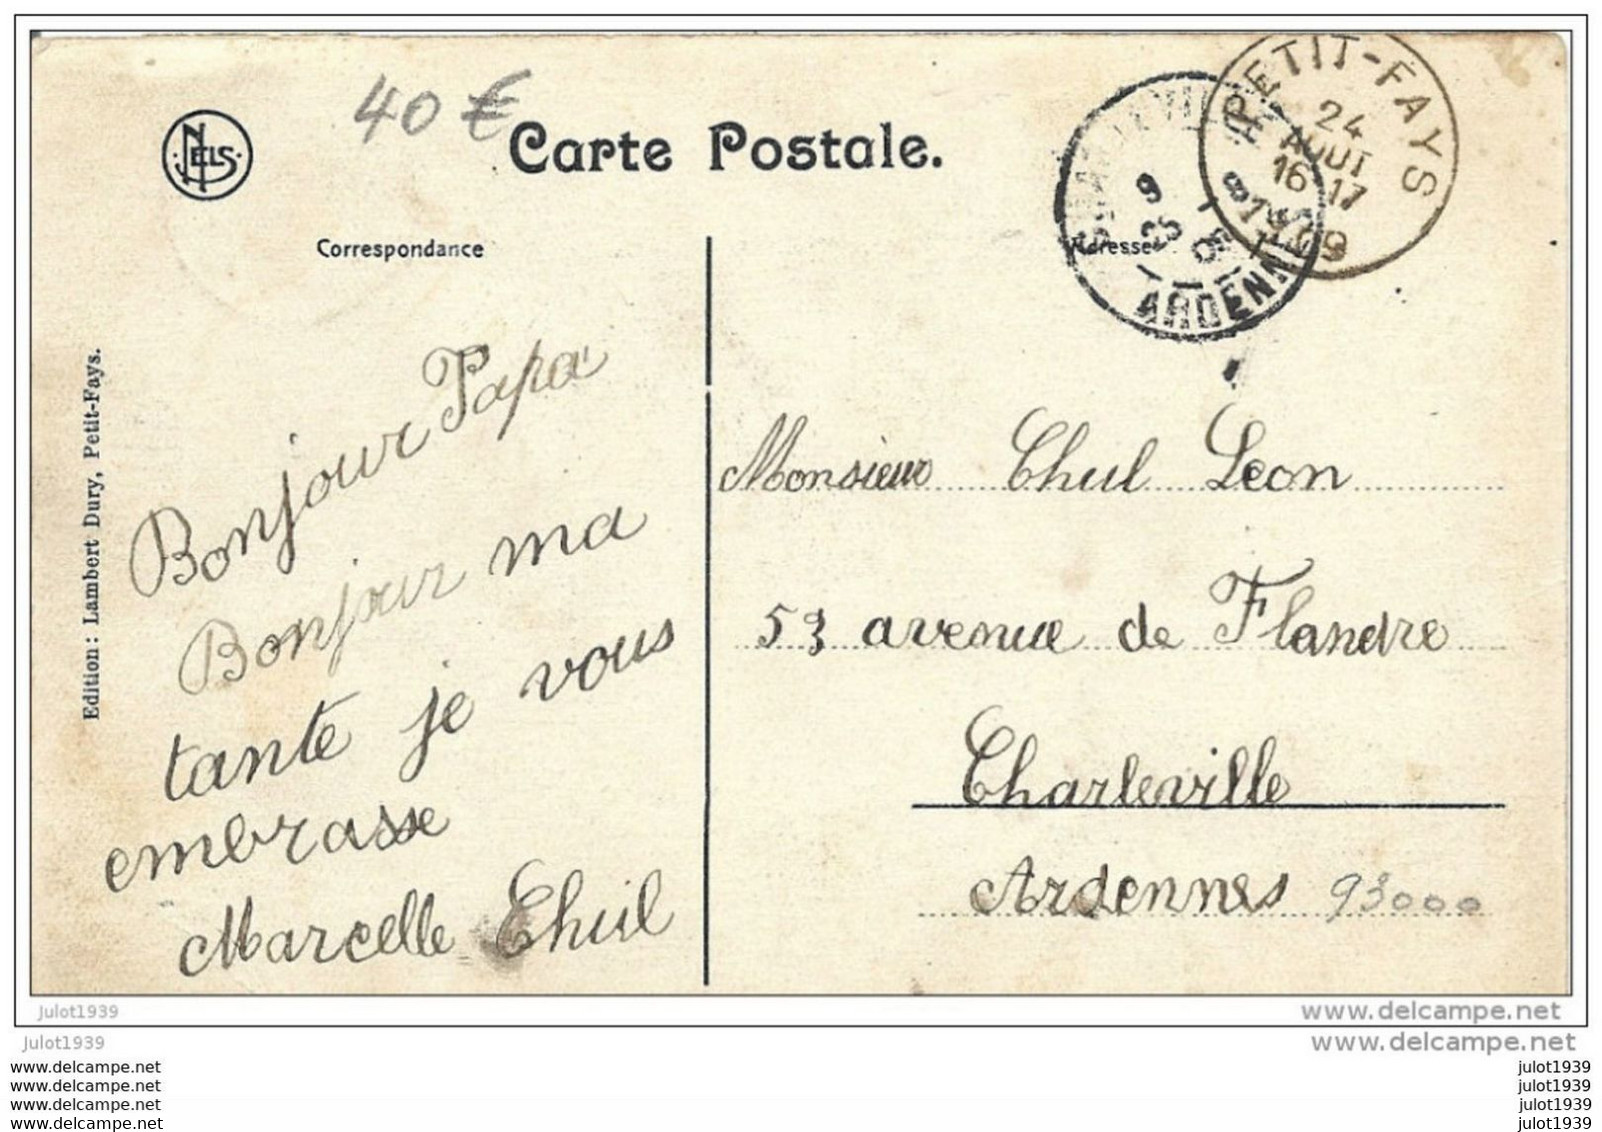 40 €
NELS
Carte Postale.
PETIT-FAYS
24
AOUT
16-17
1909
9
25
ARDENNES
Correspondance
Adresse
Edition : Lambert Dury, Petit-Fays.
Bonjour Papa
Bonjour ma
tante je vous
embrasse
Marcelle Thul
Monsieur Thul Leon
53 avenue de Flandre
Charleville
Ardennes 93000
julot1939
www.delcampe.net
julot1939
www.delcampe.net
www.delcampe.net
www.delcampe.net
www.delcampe.net
www.delcampe.net
julot1939
julot1939
julot1939
julot1939